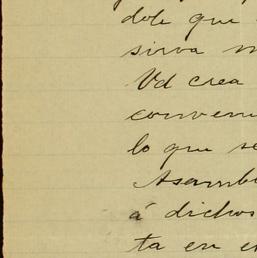 dole que
sirva
Vd crea
conveni
lo que se
Asambl
á dichos
ta en e